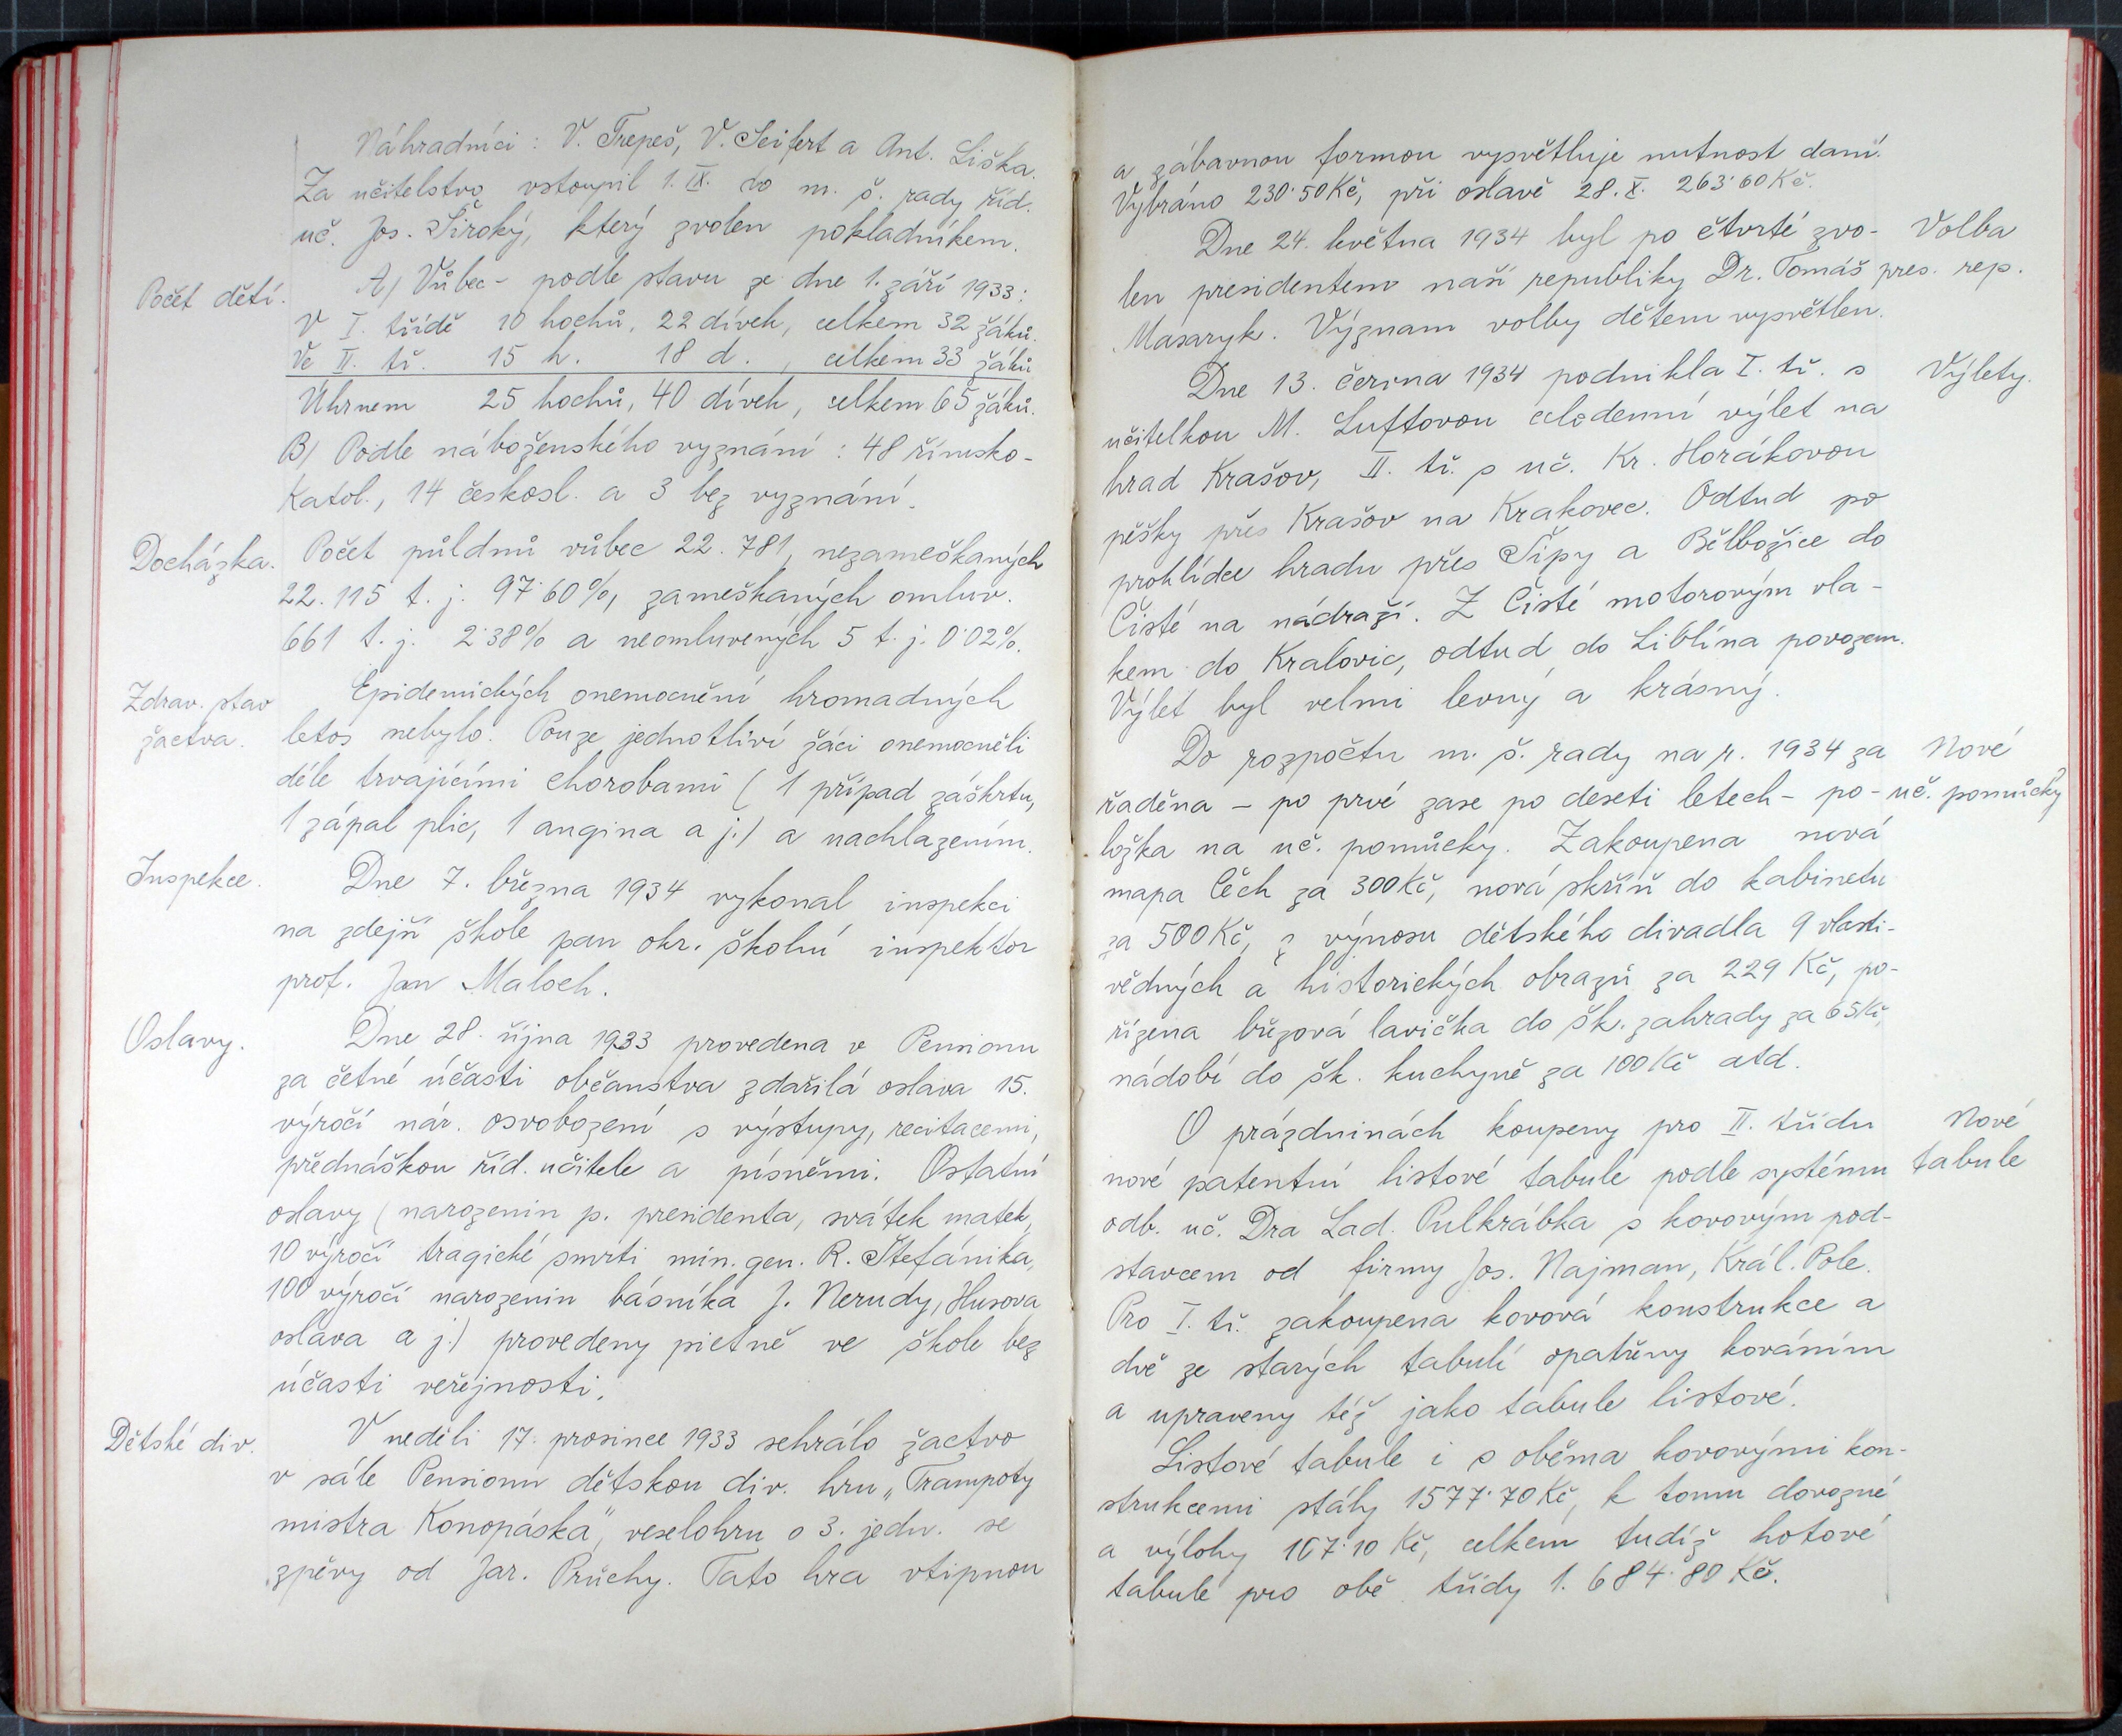 Náhradníci : V. Trepeš, V. Seifert a Ant. Liška.
Za učitelstvo vstoupil 1. IX. do m. š. rady říd.
uč. Jos. Široký, který zvolen pokladníkem.
Počet dětí.
A/ Vůbec - podle stavu ze dne 1. září 1933 :
V I. třídě 10 hochů, 22 dívek, celkem 32 žáků.
Ve II. tř. 15 h. 18 d. , celkem 33 žáků
Úhrnem 25 hochů, 40 dívek, celkem 65 žáků.
B/ Podle náboženského vyznání : 48 římsko-
katol., 14 českosl. a 3 bez vyznání.
Docházka.
Počet půldnů vůbec 22.781, nezameškaných
22.115 t. j. 97˙60%, zameškaných omluv.
661 t. j. 2˙38% a neomluvených 5 t. j. 0˙02%.
Zdrav. stav
žactva.
Epidemických onemocnění hromadných
letos nebylo. Pouze jednotliví žáci onemocněli
déle trvajícími chorobami ( 1 případ záškrtu,
1 zápal plic, 1 angina a j.) a nachlazením.
Inspekce.
Dne 7. března 1934 vykonal inspekci
na zdejší škole pan okr. školní inspektor
prof. Jan Maloch.
Oslavy.
Dne 28. října 1933 provedena v Pensionu
za četné účasti občanstva zdařilá oslava 15.
výročí nár. osvobození s výstupy, recitacemi,
přednáškou říd. učitele a písněmi. Ostatní
oslavy ( narozenin p. presidenta, svátek matek,
10 výročí tragické smrti min. gen. R. Štefánika,
100 výročí narozenin básníka J. Nerudy, Husova
oslava a j.) provedeny pietně ve škole bez
účasti veřejnosti.
Dětské div.
V neděli 17. prosince 1933 sehrálo žactvo
v sále Pensionu dětskou div. hru „Trampoty
mistra Konopáska", veselohru o 3. jedn. se
zpěvy od Jar. Průchy. Tato hra vtipnou
a zábavnou formou vysvětluje nutnost daní.
Vybráno 230˙50 Kč, při oslavě 28. X. 263˙60 Kč.
Dne 24. května 1934 byl po čtvrté zvo-
len presidentem naší republiky Dr. Tomáš
Masaryk. Význam volby dětem vysvětlen.
Volba
pres. rep.
Dne 13. června 1934 podnikla I. tř. s
učitelkou M. Luftovou celodenní výlet na
hrad Krašov, II. tř. s uč. Kr. Horákovou
pěšky přes Krašov na Krakovec. Odtud po
prohlídce hradu přes Šípy a Bělbožice do
Čisté na nádraží. Z Čisté motorovým vla-
kem do Kralovic, odtud do Liblína povozem.
Výlet byl velmi levný a krásný.
Výlety.
Do rozpočtu m. š. rady na r. 1934 za
řaděna - po prvé zase po deseti letech - po-
ložka na uč. pomůcky. Zakoupena nová
mapa Čech za 300 Kč, nová skříň do kabinetu
za 500 Kč, z výnosu dětského divadla 9 vlasti-
vědných a historických obrazů za 229 Kč, po-
řízena březová lavička do šk. zahrady za 65 Kč,
nádobí do šk. kuchyně za 100 Kč atd.
Nové
uč. pomůcky
O prázdninách koupeny pro II. třídu
nové patentní listové tabule podle systému
odb. uč. Dra Lad. Pulkrábka s kovovým pod-
stavcem od firmy Jos. Najman, Král. Pole.
Pro I. tř. zakoupena kovová konstrukce a
dvě ze starých tabulí opatřeny kováním
a upraveny též jako tabule listové.
Nové
tabule
Listové tabule i s oběma kovovými kon-
strukcemi stály 1577˙70 Kč, k tomu dovozné
a výlohy 107˙10 Kč, celkem tudíž hotové
tabule pro obě třídy 1.684˙80 Kč.